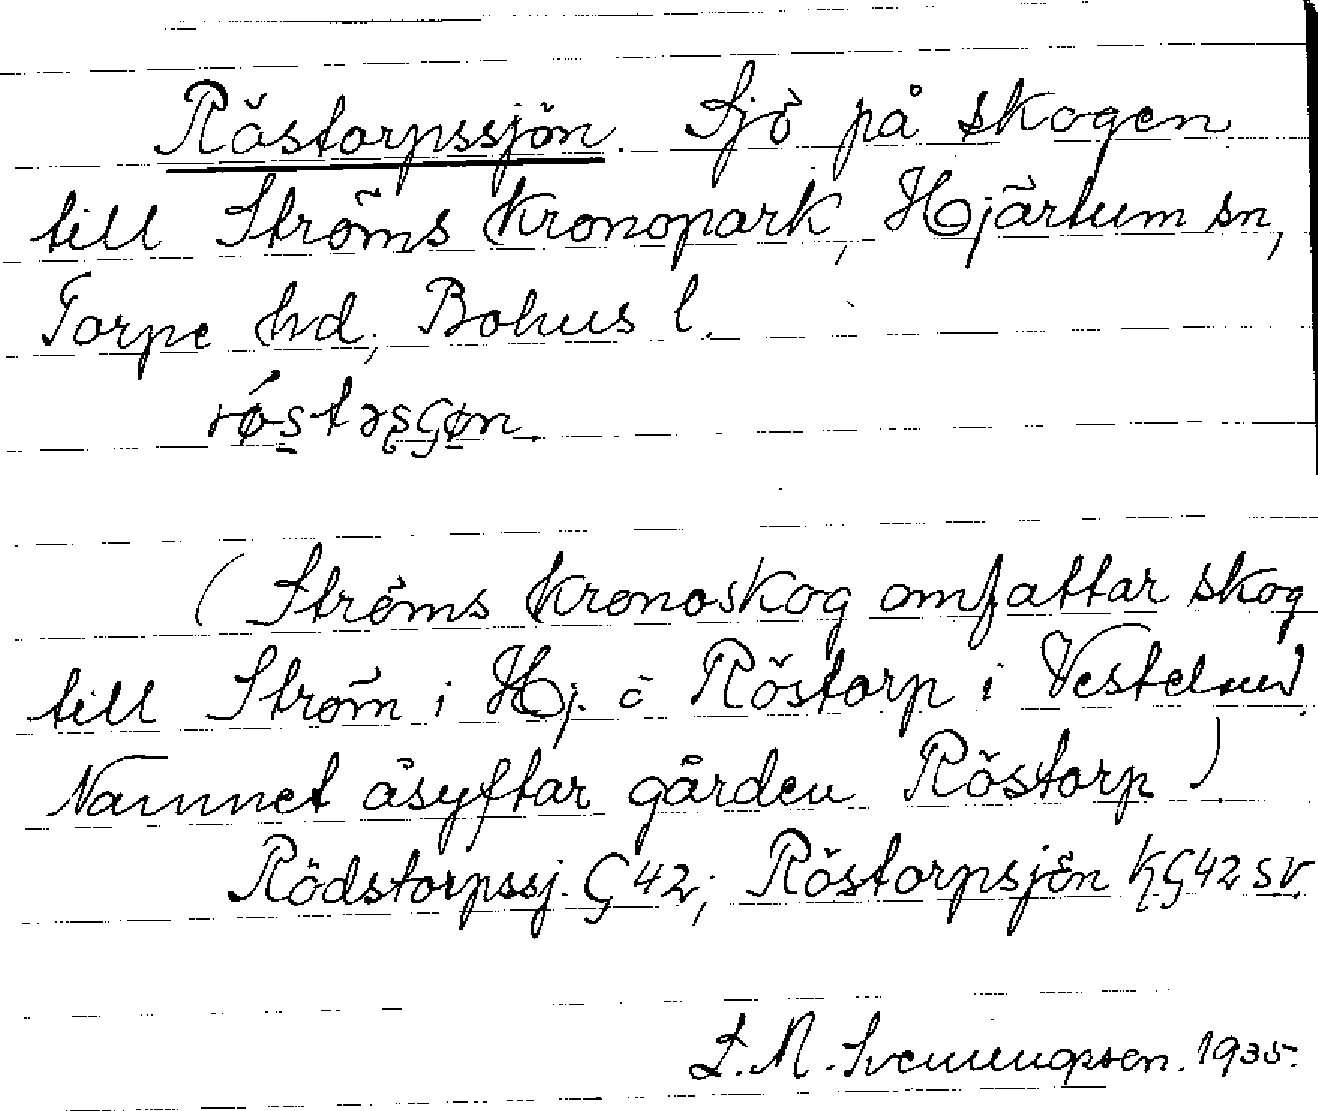 Röstorpssjön. Sjö på skogen
till Ströms kronopark, Hjärtum sn,
Torpe hd, Bohus l.
røstəʂʃøn.
(Ströms kronoskog omfattar skog
till Ström i Hj. o Röstorp i Västerland
Namnet åsyftar gården Röstorp).
Rödstorpssj. G 42; Röstorpsjön KG 42 SV.
M. Svenungsson. 1935.